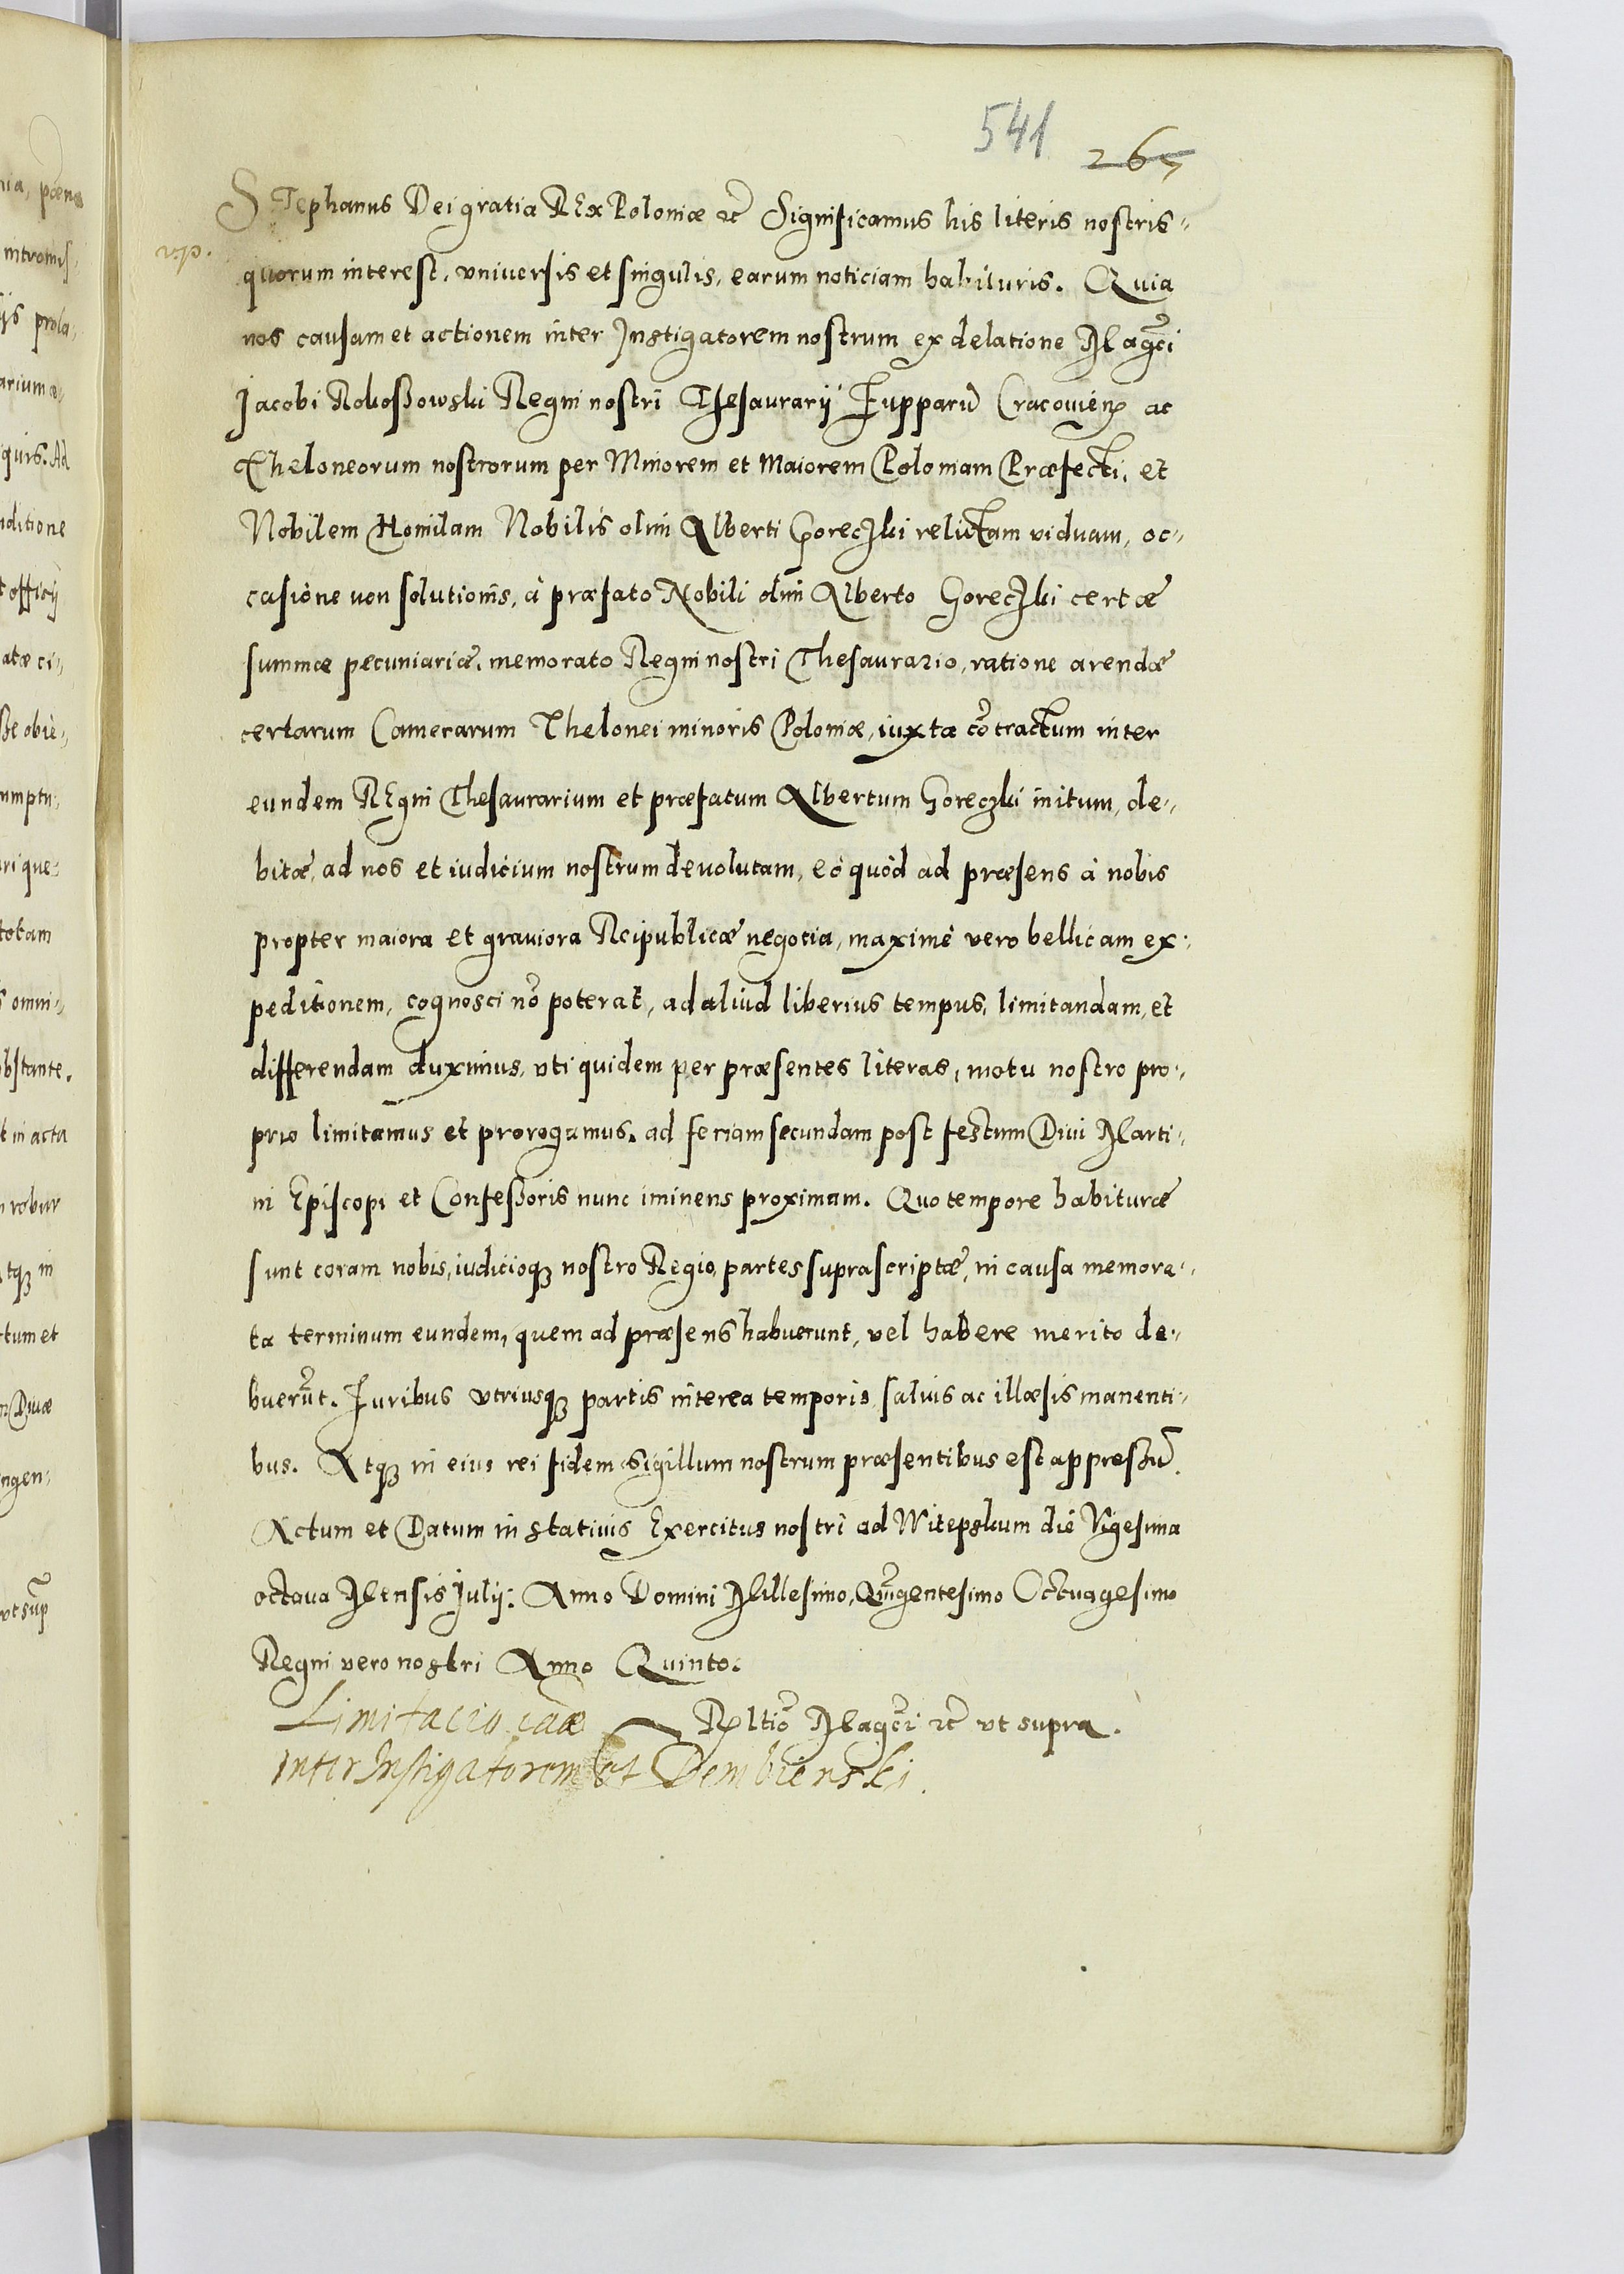 541
265
STephanus Dei gratia REx Poloniæ etc̃ Significamus his literis nostris
quorum interest, vniuersis et singulis, earum noticiam habituris. Quia
nos causam et actionem inter Instigatorem nostrum ex delatione Magc̃i
Jacobi Rokoßowski Regni nostri Thesaurarij Zupparũ Cracouien̄ ac
Theloneorum nostrorum per Minorem et Maiorem Poloniam Præfecti, et
Nobilem Homilam Nobilis olim Alberti Goreczki relictam viduam, oc-
casione non solutionis, à præfato Nobili olim Alberto Goreczki certæ
summæ pecuniariæ, memorato Regni nostri Thesaurario, ratione arendæ
certarum Camerarum Thelonei minoris Poloniæ, iuxta cõtractum inter
eundem REgni Thesaurarium et præfatum Albertum Goreczki initum, de-
bitæ, ad nos et iudicium nostrum deuolutam, eò quòd ad præsens à nobis
propter maiora et grauiora Reipublicæ negotia, maximè vero bellicam ex-
peditionem, cognosci nõ poterat, ad aliud liberius tempus, limitandam, et
differendam duximus, vti quidem per præsentes literas, motu nostro pro-
prio limitamus et prorogamus, ad feriam secundam post festum Diui Marti-
ni Episcopi et Confeßoris nunc iminens proximam. Quo tempore habituræ
sunt coram nobis, iudicioqz nostro Regio, partes suprascriptæ, in causa memora-
ta terminum eundem, quem ad præsens habuerunt, vel habere merito de-
buerũt. Juribus vtriusqz partis interea temporis saluis ac illæsis manenti-
bus. Atqz in eius rei fidem Sigillum nostrum præsentibus est appreßũ.
Actum et Datum in statiuis Exercitus nostri ad Witepskum die Vigesima
octaua Mensis Julij: Anno Domini Millesimo, Quĩgentesimo Octuagesimo
Regni vero nostri Anno Quinto.
Limitacio cãæ Reltiõ Magc̃i etc̃ vt supra.
inter Instigatorem et Dembienski.